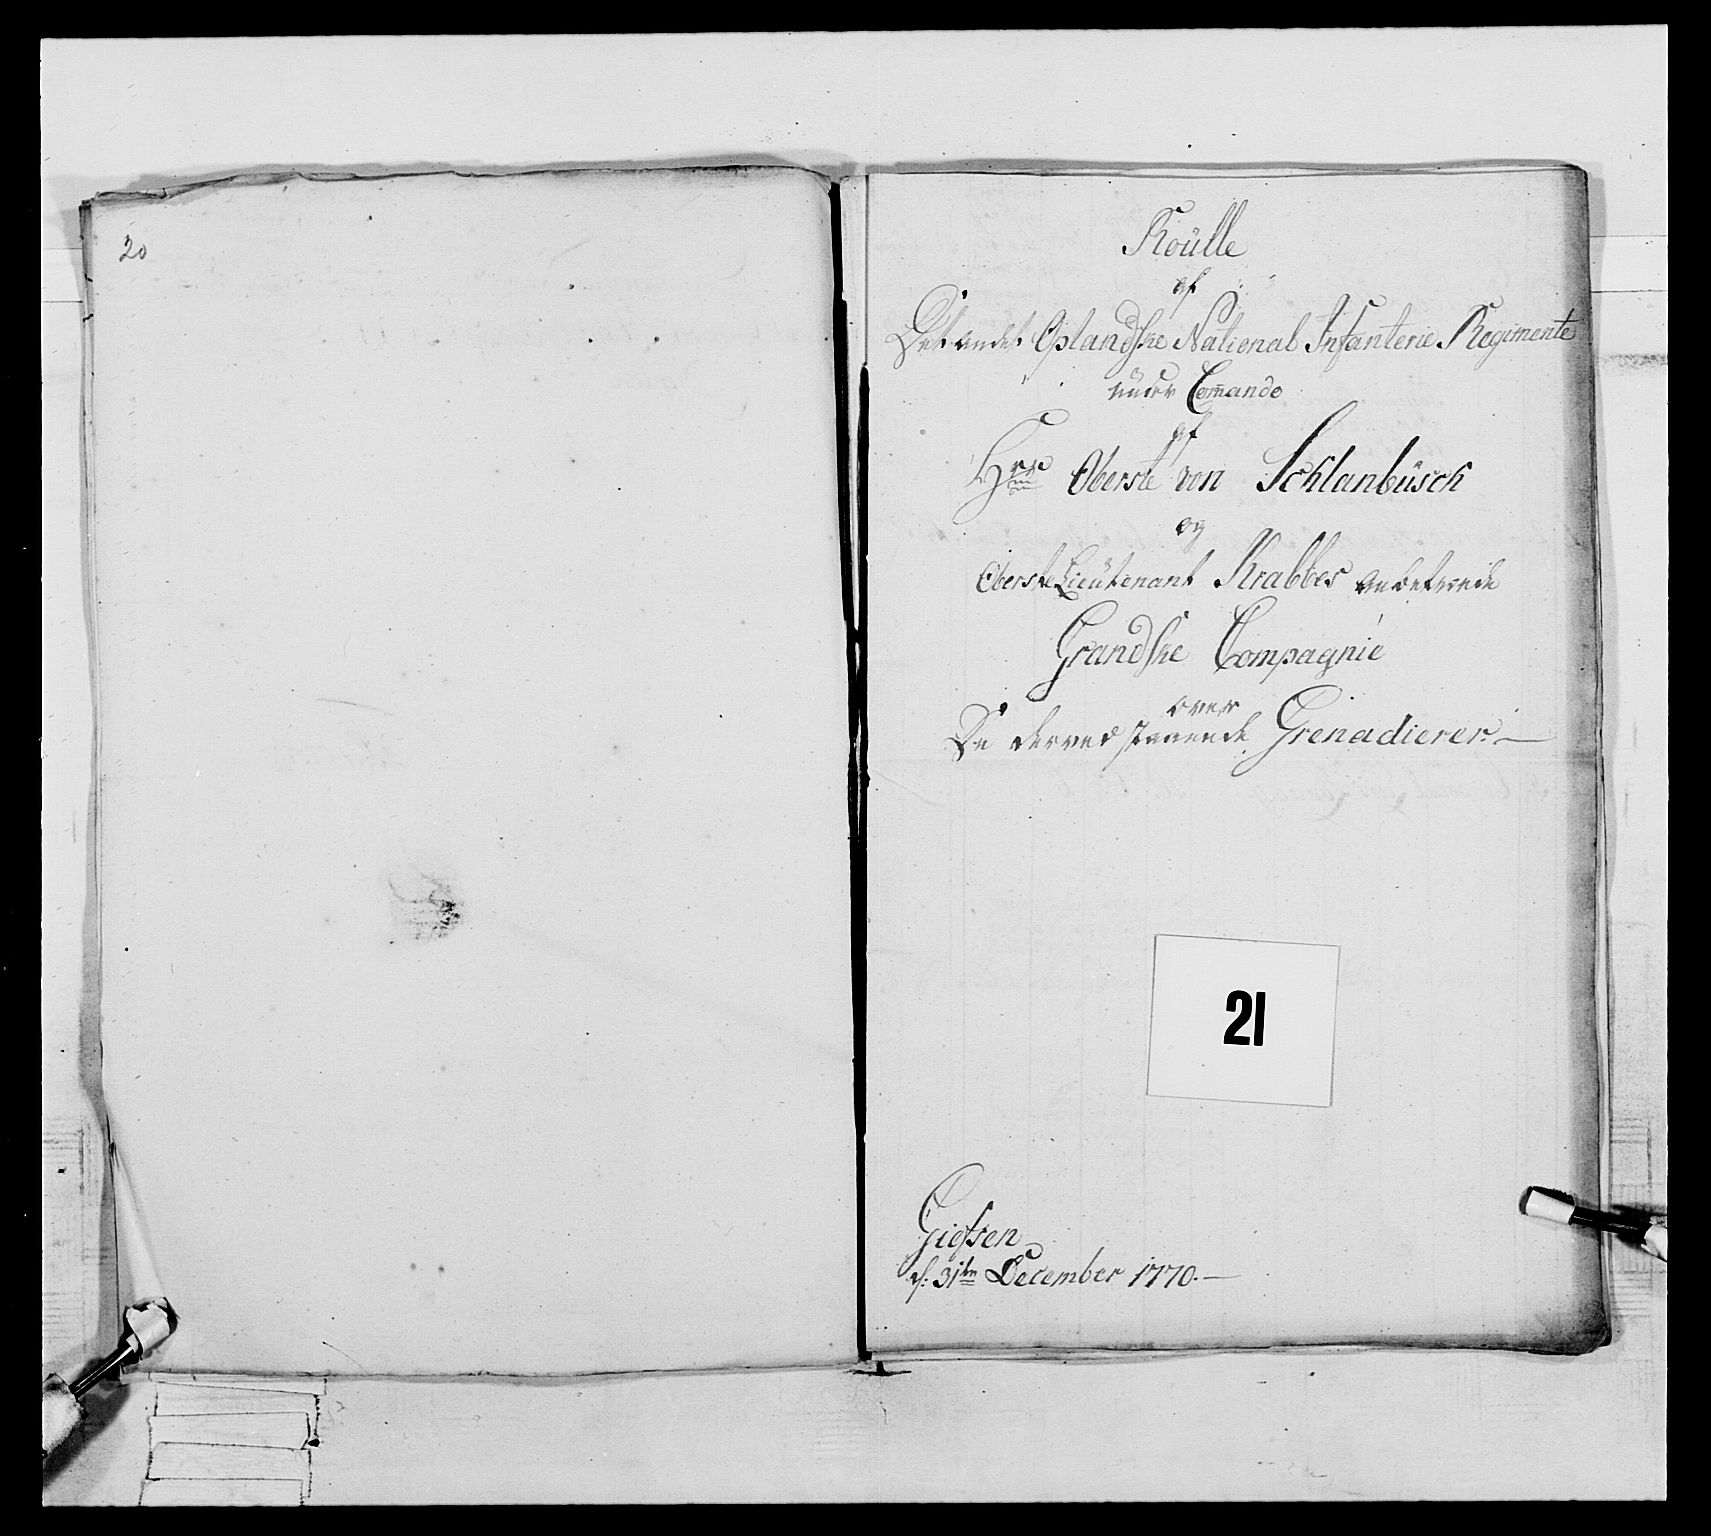 20
Roülle
af
Det andet Oplandske National Infanterie Regimente
ünder Com̄ando
af
Hrr Oberste von Schlanbüsch
og
Oberste Lieütenant Krabbes anbetroede
Grandske Compagnie
over
De derved staaende Grenadierer.—
21
Giossen
d: 31te December 1770.—